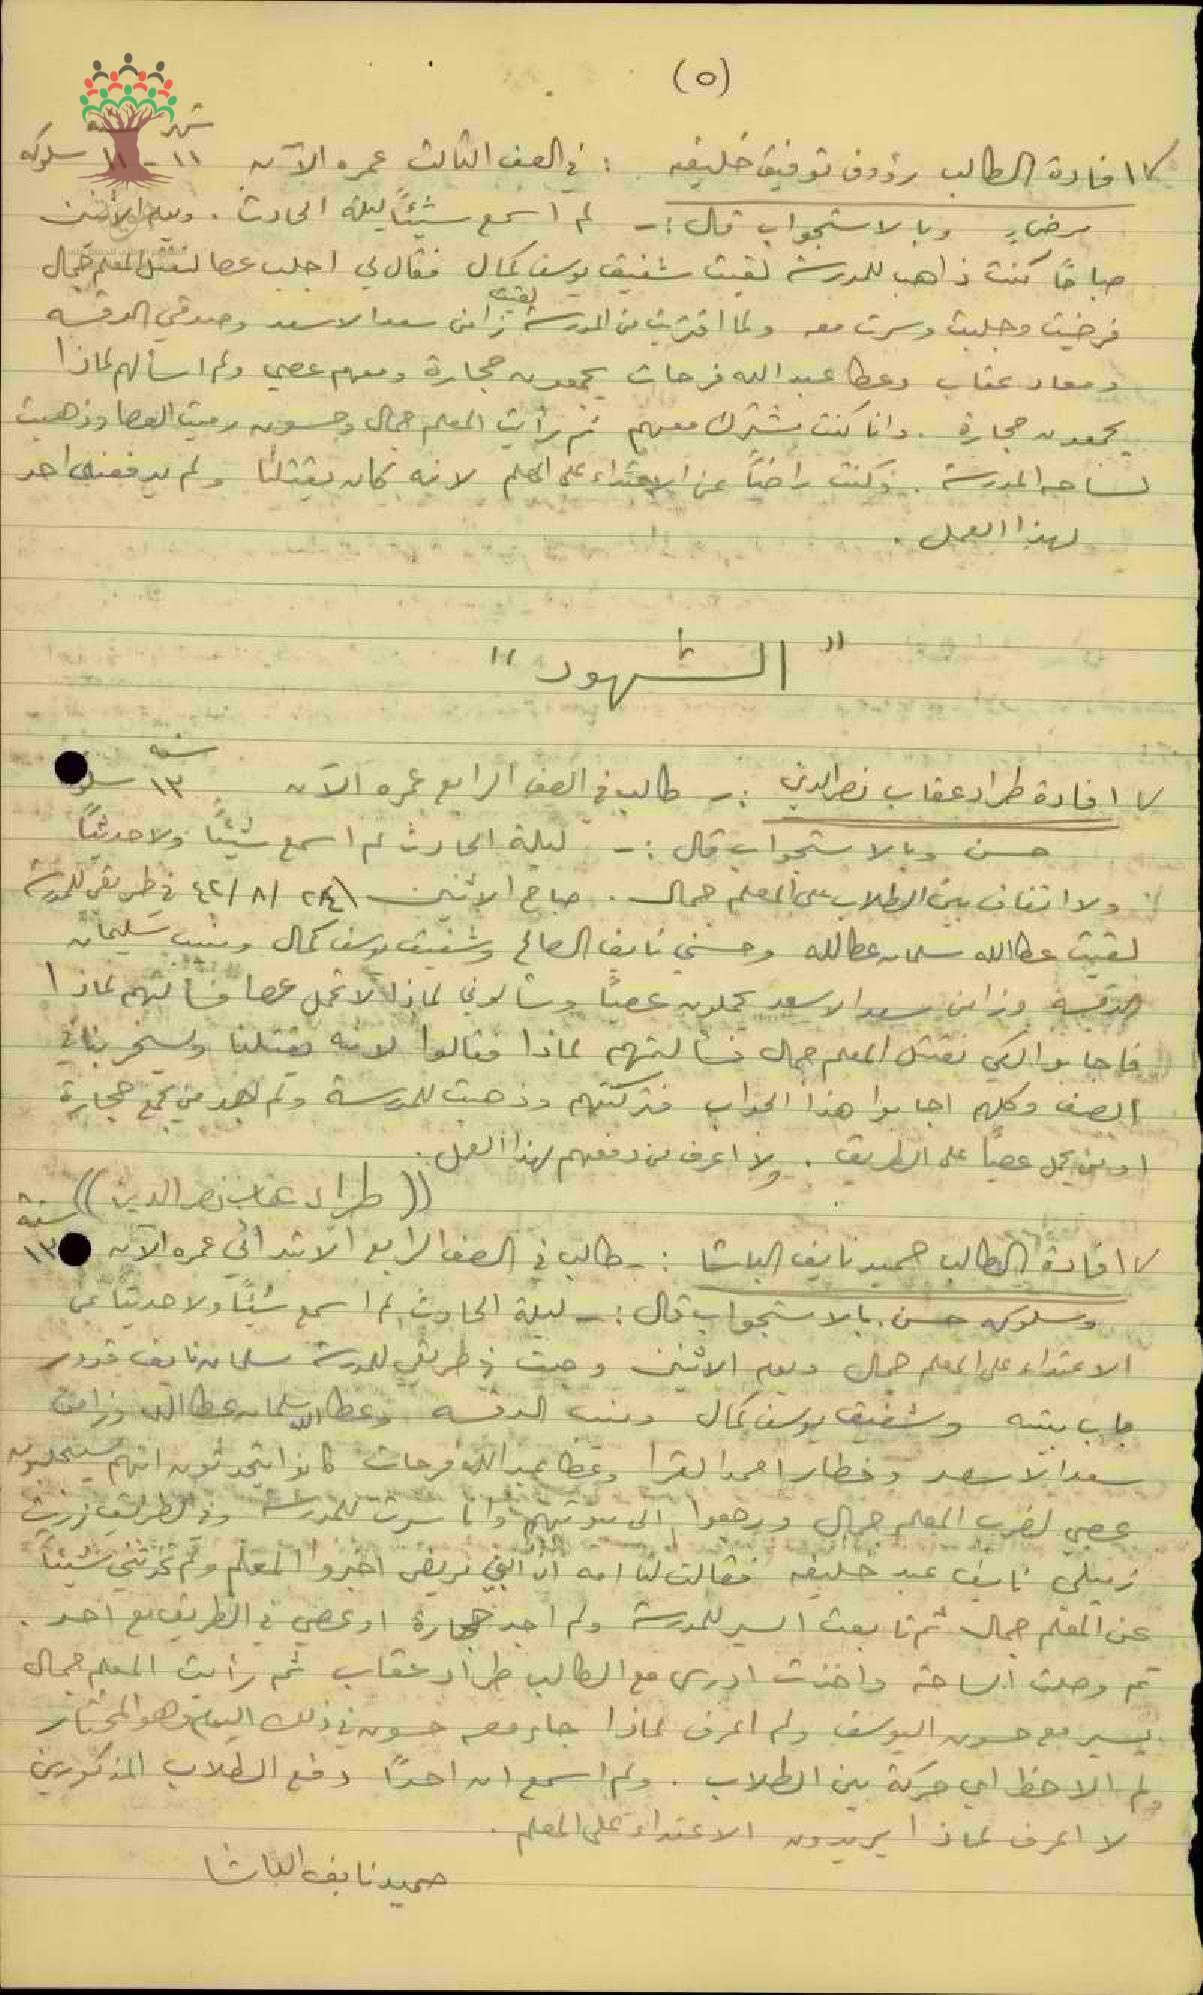 (٥)
افادة الطالب رؤوف توفيق خليفه : في الصف الثالث عمره الآن ١١ سنه - ١١ شهر سلوكه
مرضي وبالاستجواب قال :- لم اسمع شيئاً ليلة الحادث . ويوم الاثنين
صباحاً كنت ذاهب للمدرسة لقيت شفيق يوسف كمال فقال لي اجلب عصا لنقتل المعلم جمال
فرضيت وجلبت وسرت معه ولما اقتربت من المدرسة لقيت زامن سعد الاسعد وصدقي الدقسه
ومعاد عقاب وعطا عبد الله فرحات يجمعون حجارة ومعهم عصي ولم اسألهم لماذا
يجمعون حجارة . وانا كنت مشترك معهم ثم رأيت المعلم جمال وحسون رميت العصا وذهبت
لساحه المدرسة . وكنت راضياً عن الاعتداء على المعلم لانه كان يقتلنا ولم يدفعني احد
لهذا العمل .
" الشهود "
افادة طراد عقاب نصر الدين :- طالب في الصف الرابع عمره الآن ١٣ سنه
حسن وبالاستجواب قال :- ليلة الحادث لم اسمع شيئاً ولا حديثاً
ولا اتفاق بين الطلاب على المعلم جمال . صباح الاثنين ٤٢/٨/ في طريقي للمدرسة
لقيت عطالله سلمان عطالله وحسني نايف الصالح وشفيق يوسف كمال ومنيب سليمان
الدقسه وزامن سعد الاسعد يحملون عصياً وسألوني لماذا لا تحمل عصا فسألتهم لماذا
فاجابوا لكي نقتل المعلم جمال فسألتهم لماذا فقالوا لانه يقتلنا ويسخر بنا في
الصف وكلهم اجابوا هذا الجواب فتركتهم وذهبت للمدرسة ولم اجد من يجمع حجارة
او من يحمل عصياً على الطريق . ولا اعرف من دفعهم لهذا العمل .
(( طراد عقاب نصر الدين ))
افادة الطالب حميد نايف الباشا :- طالب في الصف الرابع الابتدائي عمره الآن ١٣ سنه
وسلوكه حسن . بالاستجواب قال :- ليلة الحادث لم اسمع شيئاً ولا حديثاً عن
الاعتداء على المعلم جمال ويوم الاثنين وجدت في طريقي للمدرسة سلمان نايف قدور
باب بيته وشفيق يوسف كمال ومنيب الدقسه وعطا الله سلمان عطا الله وزامن
سعد الاسعد وخطار احمد القرا وعطا عبد الله فرحات كانوا يتحدثون انهم سيجلبون
عصي لضرب المعلم جمال ورجعوا الى بيوتهم وانا سرت للمدرسة وفي الطريق زرت
زميلي نايف عبد خليفه فقالت لنا امه ان ابني مريض اخبروا المعلم ولم تحدثني شيئاً
عن المعلم جمال ثم تابعت السير للمدرسة ولم اجد حجارة او عصي في الطريق مع احد .
ثم وصلت الساحة واخذت ادرس مع الطالب طراد عقاب ثم رأيت المعلم جمال
يسير مع حسون اليوسف ولم اعرف لماذا جاء معه حسون في ذلك اليوم وهو المختار
ولم الاحظ اي حركة بين الطلاب . ولم اسمع ان احداً دفع الطلاب المذكورين
لا اعرف لماذا يريدون الاعتداء على المعلم .
حميد نايف الباشا